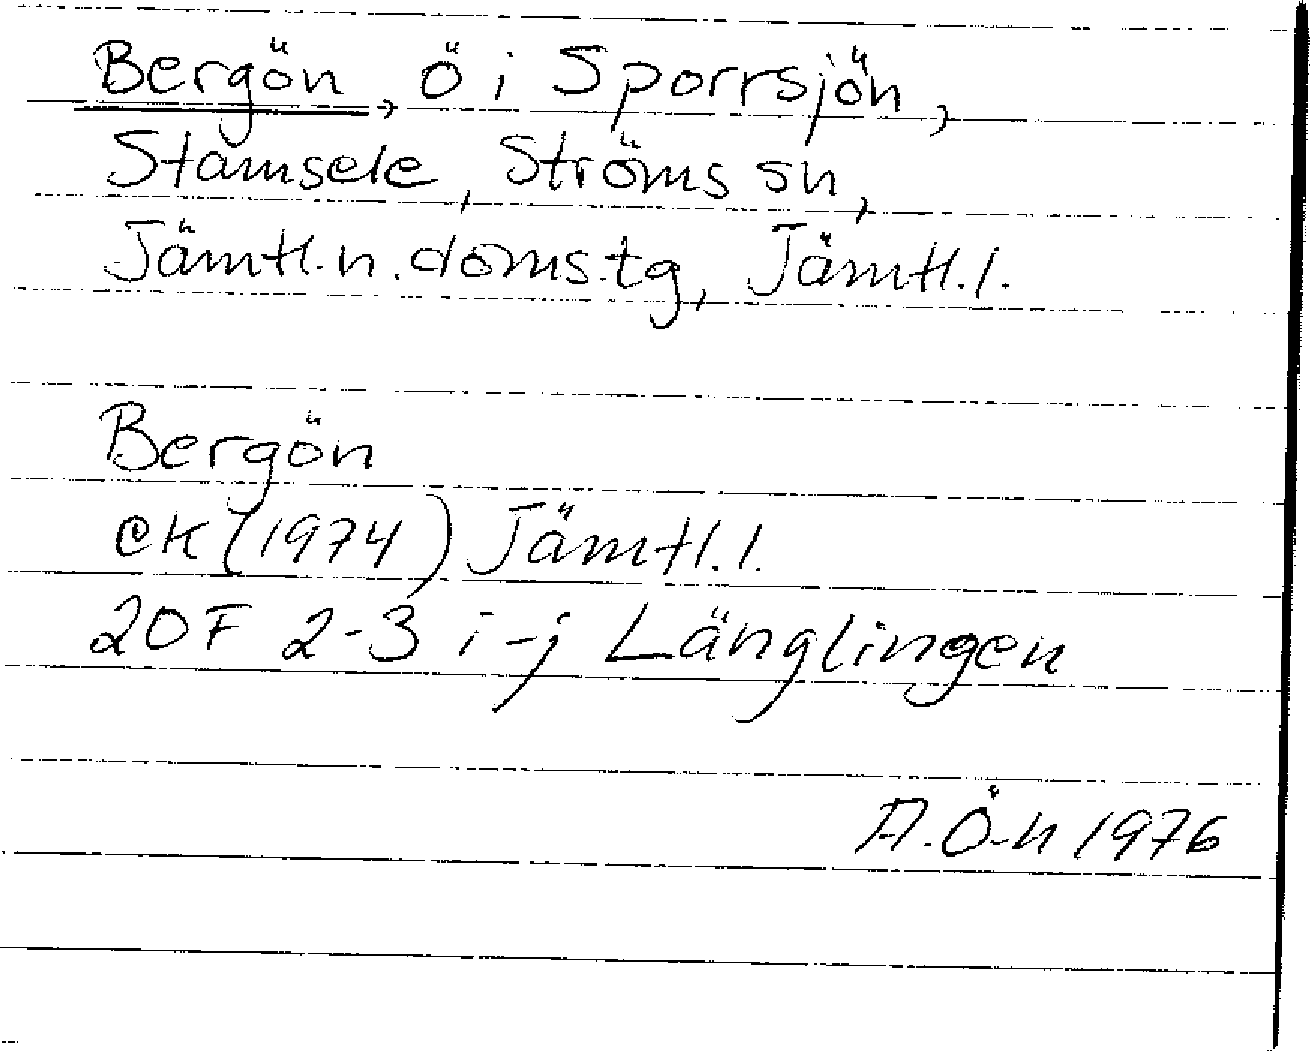 Bergön, ö i Sporrsjön,
Stamsele, Ströms sn,
Jämtl.n.doms.tg, Jämtl.l.
Bergön
ek (1974) Jämtl.l.
20F 2-3 i-j Länglingen
A.Ö-n 1976